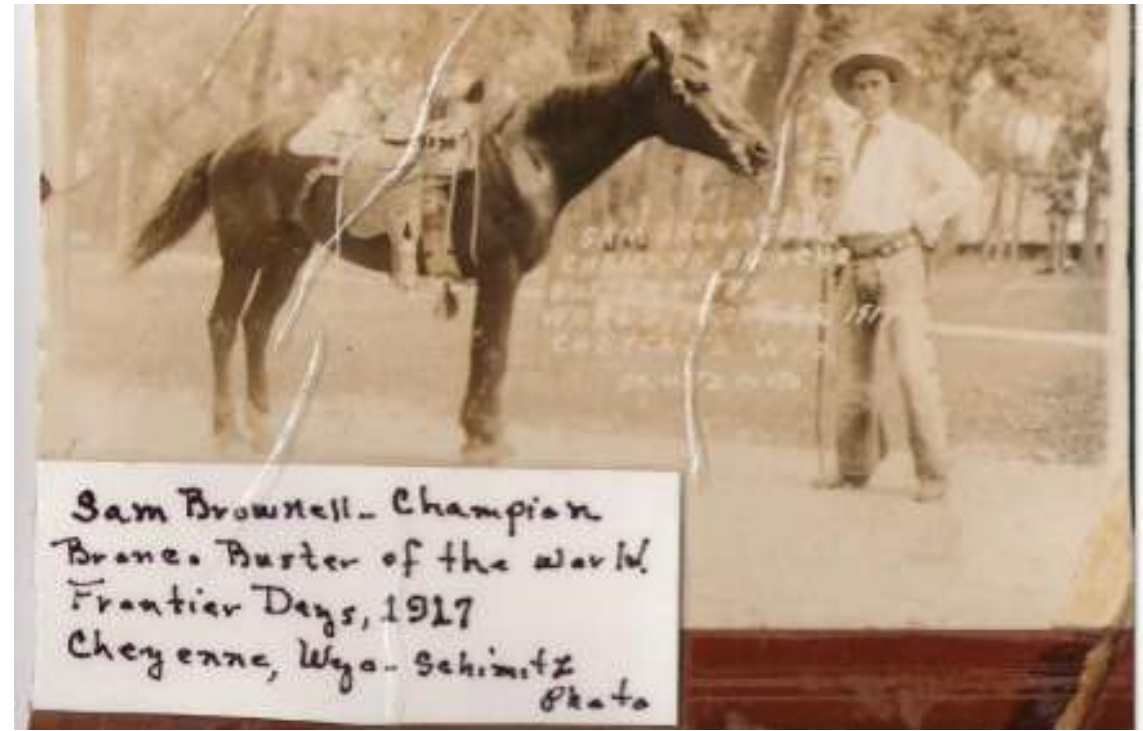 SAM
Sam Brownell - Champion
Bronco Buster of the world.
Frontier Days, 1917
Cheyenne, Wyo - Schimitz
Photo